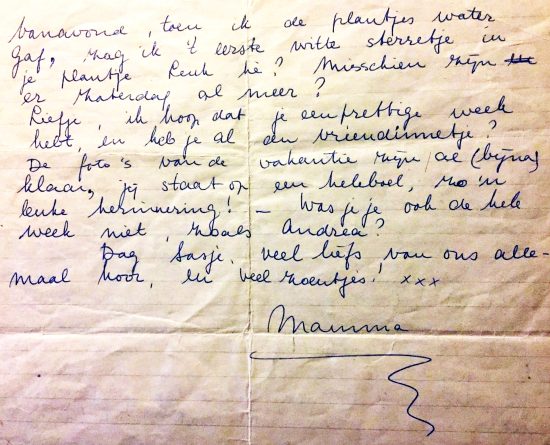 Vanavond, toen ik de plantjes water
gaf, zag ik 't eerste witte sterretje in
je plantje Leuk hè? Misschien zijn
er Zaterdag al meer?
Liefje, ik hoop dat je een prettige week
hebt, en heb je al een vriendinnetje?
De foto's van de vakantie zijn al (bijna)
klaar, jij staat op een heleboel, zo 'n
leuke herinnering! - Was je je ook de hele
week niet, zoals Andrea?
Dag Sasje, veel liefs van ons alle-
maal hoor, en veel zoentjes! xxx
Mamma